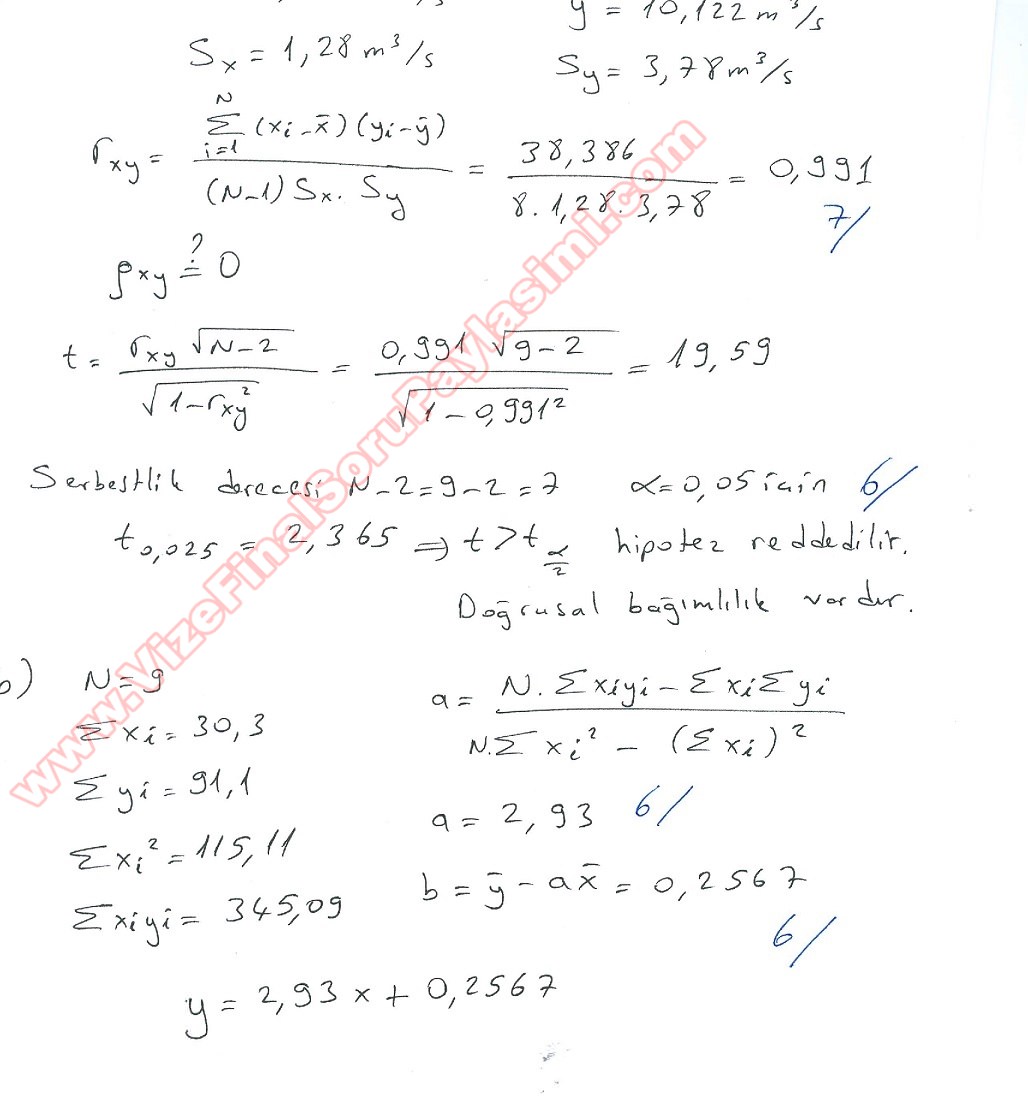 y = 10,122 m³/s
Sx = 1,28 m³/s
Sy = 3,78 m³/s
rxy = N Σ i=1 (xi - x̄) (yi - ȳ) / (N-1) Sx. Sy = 38,386 / 8. 1,28. 3,78 = 0,991
7/
ρxy ≟ 0
t = rxy √N-2 / √1-rxy² = 0,991 √9-2 / √1-0,991² = 19,59
Serbestlik derecesi N-2=9-2=7 α=0,05 için 6/
t0,025 = 2,365 ⇒ t > tα/2 hipotez reddedilir.
Doğrusal bağımlılık vardır.
b) N=9
a = N. Σxiyi - Σxi Σyi / N.Σxi² - (Σxi)²
Σxi = 30,3
Σyi = 91,1
a = 2,93 6/
Σxi² = 115,11
b = ȳ - ax̄ = 0,2567
Σxiyi = 345,09
6/
y = 2,93 x + 0,2567
www.VizeFinalSoruPaylasimi.com